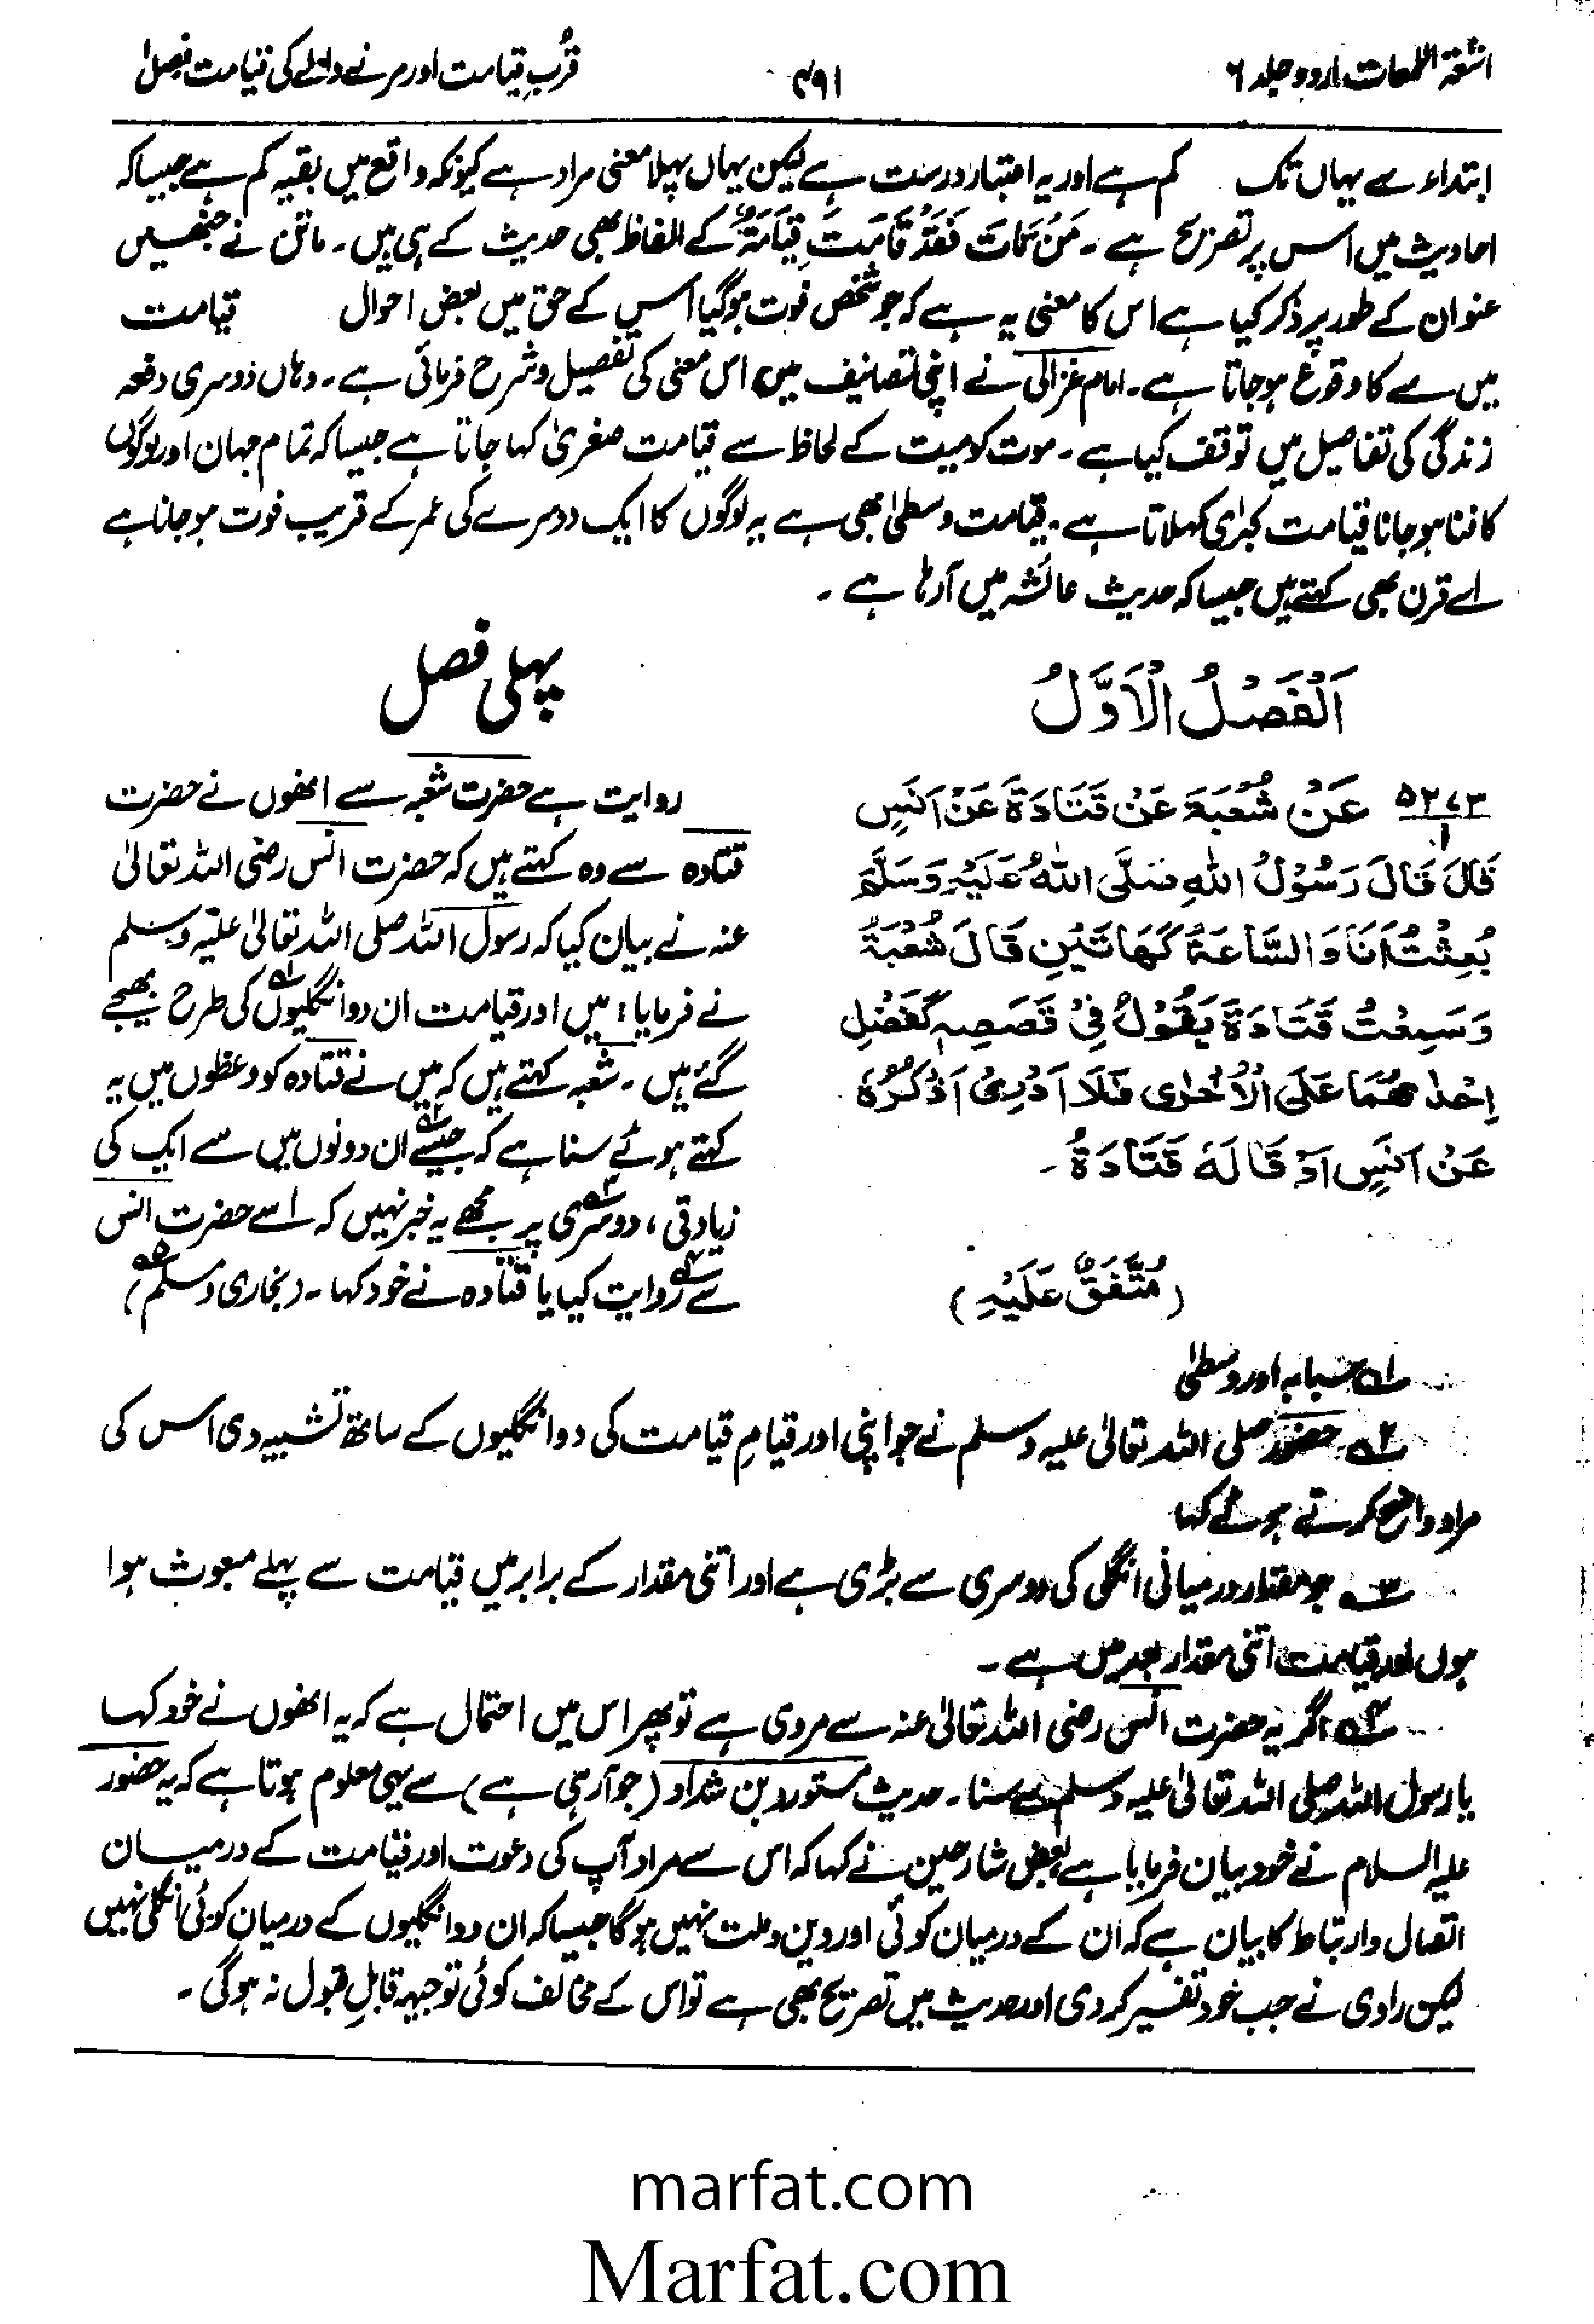 اشعۃ اللمعات اردو جلد ۶
۴۹۱
قُربِ قیامت اور مرنے والے کی قیامت فصل۱
ابتداء سے یہاں تک کم ہے اور یہ اعتبار درست ہے لیکن یہاں پہلا معنی مراد ہے کیونکہ واقع میں بقیہ کم ہے جیسا کہ
احادیث میں اس پر تصریح ہے ۔ مَنْ مَّاتَ فَقَدْ قَامَتْ قِيَامَتُهٗ کے الفاظ بھی حدیث کے ہی ہیں ۔ ماتن نے جنھیں
عنوان کے طور پر ذکر کیا ہے اس کا معنی یہ ہے کہ جو شخص فوت ہوگیا اس کے حق میں بعض احوال قیامت
میں سے کا وقوع ہو جاتا ہے ۔ امام غزالی نے اپنی تصانیف میں اس معنی کی تفصیل و شرح فرمائی ہے ۔ وہاں دوسری دفعہ
زندگی کی تفاصیل میں توقف کیا ہے ۔ موت کو میت کے لحاظ سے قیامت صغریٰ کہا جاتا ہے جیسا کہ تمام جہان اور لوگوں
کا فنا ہو جانا قیامت کبرٰی کہلاتا ہے ۔ قیامت وسطیٰ بھی ہے یہ لوگوں کا ایک دوسرے کی عمر کے قریب فوت ہو جانا ہے
اسے قرن بھی کہتے ہیں جیسا کہ حدیث عائشہ میں آرہا ہے ۔
اَلْفَصْلُ الْاَوَّلُ
۵۲۷۳/۱ عَنْ شُعْبَةَ عَنْ قَتَادَةَ عَنْ اَنَسٍ
قَالَ قَالَ رَسُوْلُ اللّٰهِ صَلَّى اللّٰهُ عَلَيْهِ وَسَلَّمَ
بُعِثْتُ اَنَا وَ السَّاعَةُ كَهَاتَيْنِ قَالَ شُعْبَةُ
وَسَمِعْتُ قَتَادَةَ يَقُوْلُ فِيْ قَصَصِهٖ كَفَضْلِ
اِحْدٰهُمَا عَلَى الْاُخْرٰى فَلَا اَدْرِيْ اَذَكَرَهٗ
عَنْ اَنَسٍ اَوْ قَالَهٗ قَتَادَةُ ۔
(مُتَّفَقٌ عَلَيْهِ)
پہلی فصل
روایت ہے حضرت شعبہ سے انھوں نے حضرت
قتادہ سے وہ کہتے ہیں کہ حضرت انس رضی اللہ تعالیٰ
عنہ نے بیان کیا کہ رسول اللہ صلی اللہ تعالیٰ علیہ وسلم
نے فرمایا : میں اور قیامت ان دو انگلیوں۱ کی طرح بھیجے
گئے ہیں ۔ شعبہ کہتے ہیں کہ میں نے قتادہ کو وعظوں میں یہ
کہتے ہوئے سنا ہے کہ جیسے۲ ان دونوں میں سے ایک کی
زیادتی ، دوسری۳ پر مجھے یہ خبر نہیں کہ اسے حضرت انس
سے۴ روایت کیا یا قتادہ نے خود کہا ۔ (بخاری و مسلم۵)
۱ سبابہ اور وسطیٰ
۲ حضور صلی اللہ تعالیٰ علیہ وسلم نے جو اپنی اور قیامِ قیامت کی دو انگلیوں کے ساتھ تشبیہ دی اس کی
مراد واضح کرتے ہوئے کہا
۳ جو مقدار درمیانی انگلی کی دوسری سے بڑی ہے اور اتنی مقدار کے برابر میں قیامت سے پہلے مبعوث ہوا
ہوں اور قیامت اتنی مقدار بعد میں ہے ۔
۴ اگر یہ حضرت انس رضی اللہ تعالیٰ عنہ سے مروی ہے تو پھر اس میں احتمال ہے کہ یہ انھوں نے خود کہا
یا رسول اللہ صلی اللہ تعالیٰ علیہ وسلم سے سنا ۔ حدیث مستورد بن شداد (جو آرہی ہے) سے یہی معلوم ہوتا ہے کہ یہ حضور
علیہ السلام نے خود بیان فرمایا ہے بعض شارحین نے کہا کہ اس سے مراد آپ کی دعوت اور قیامت کے درمیان
اتصال و ارتباط کا بیان ہے کہ ان کے درمیان کوئی اور دین و ملت نہیں ہوگا جیسا کہ ان دو انگلیوں کے درمیان کوئی انگلی نہیں
لیکن راوی نے جب خود تفسیر کردی اور حدیث میں تصریح بھی ہے تو اس کے مخالف کوئی توجیہہ قابلِ قبول نہ ہوگی ۔
marfat.com
Marfat.com